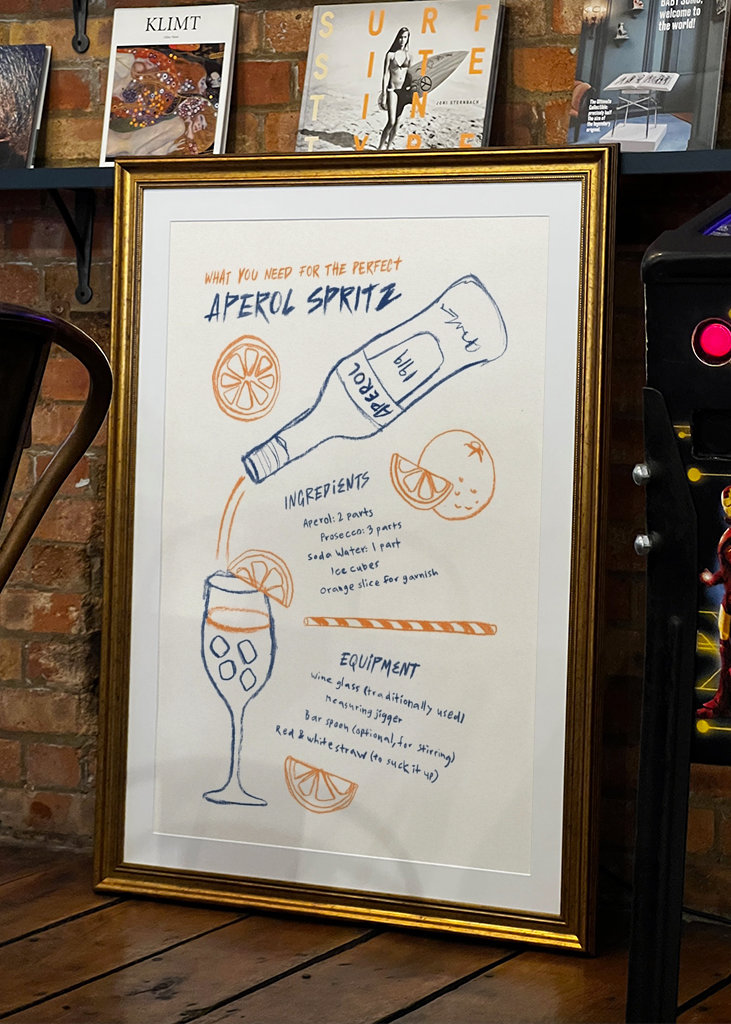 KLIMT
SURF
SITE
IN
TYPE
JONI STERNBACH
BABY SUMO,
welcome to
the world!
The Ultimate
Collectible:
precisely half
the size of
the legendary
original.
WHAT YOU NEED FOR THE PERFECT
APEROL SPRITZ
APEROL
1919
INGREDIENTS
Aperol: 2 parts
Prosecco: 3 parts
Soda Water: 1 part
Ice cubes
Orange slice for garnish
EQUIPMENT
Wine glass (traditionally used)
Measuring jigger
Bar spoon (optional, for stirring)
Red & white straw (to suck it up)